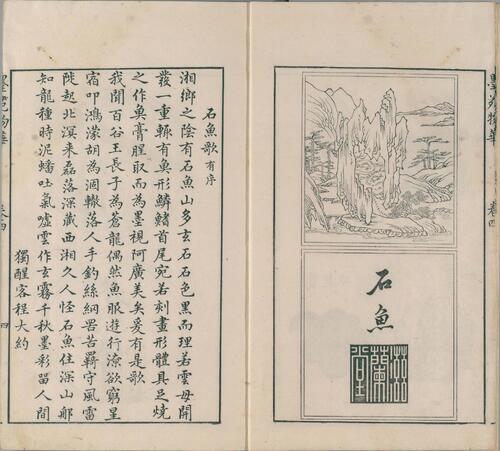 墨苑物華 卷四
石魚
滋蘭堂
石魚歌 有序
湘鄉之陰有石魚山多玄石石色黑而理若雲母開
發一重輒有魚形鱗鰭首尾宛若刻畫形體具足燒
之作魚膏腥取而為墨硯阿廣美矣爰有是歌
我聞百谷王長子為蒼龍偶然魚服遊行潦欲窮星
宿叩鴻濛胡為涸轍落人手釣絲網罟苦羈守風雷
陡起北溟来磊落深藏西湘久人怪石魚住深山郍
知龍種時泥蟠吐氣噓雲作玄霧千秋墨彩畱人間
獨醒客程大約
墨苑物華 卷四 四